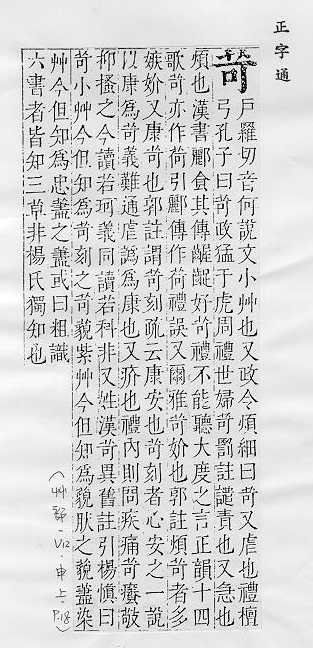 正字通
苛 戶羅切音何說文小艸也又政令煩細曰苛又虐也禮檀
弓孔子曰苛政猛于虎周禮世婦苛罰註譴責也又急也
煩也漢書酈食其傳齷齪好苛禮不能聽大度之言正韻十四
歌苛亦作荷引酈傳作荷禮誤又爾雅苛妎也郭註煩苛者多
嫉妎又康苛也郭註謂苛刻疏云康安也苛刻者心安之一說
以康爲苛義難通虐譌爲康也又疥也禮內則問疾痛苛癢敬
抑搔之今讀若珂義同讀若科非又姓漢苛異舊註引楊愼曰
苛小艸今但知爲苛刻之苛藐紫艸今但知爲藐肰之藐藎染
艸今但知爲忠藎之藎或曰粗識
六書者皆知三草非楊氏獨知也
(艸部·V12·申上·P.18)